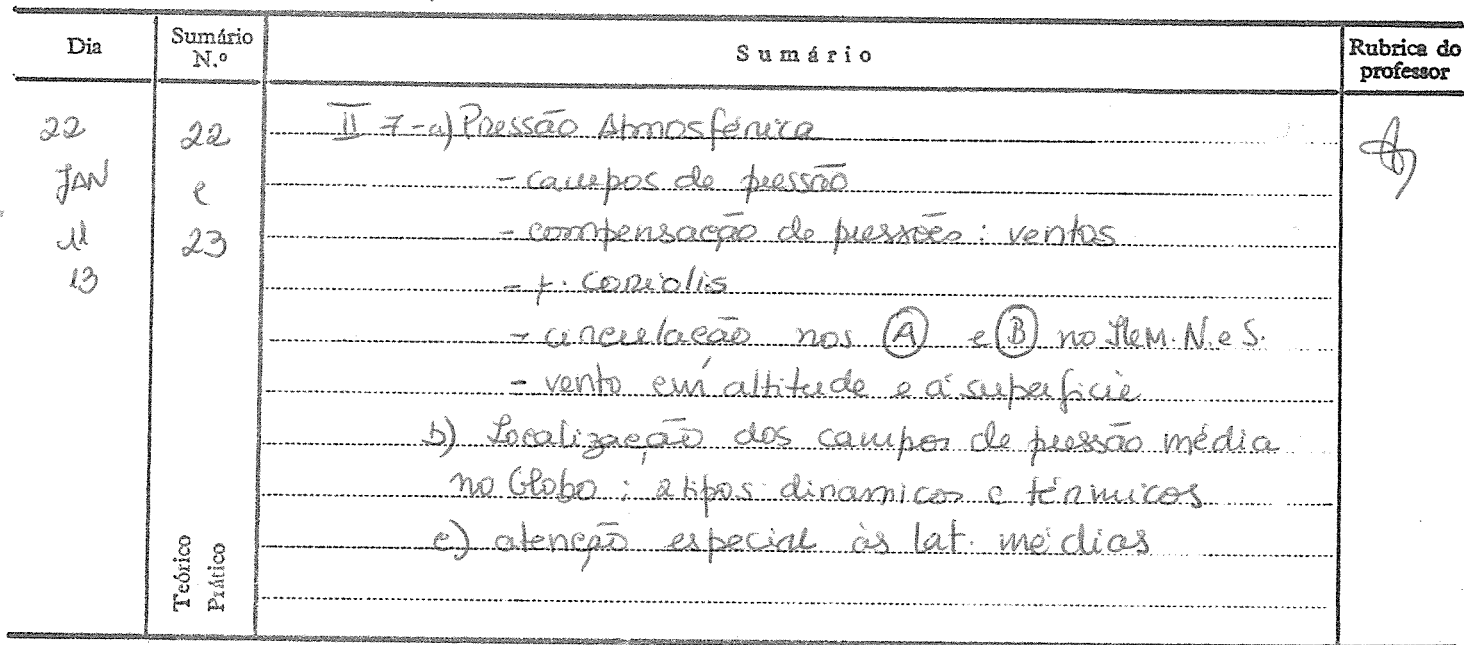 Dia
Sumário N.º
Sumário
Rubrica do professor
22 JAN 11 13
22 e 23
II 7-a) Pressão Atmosférica
- campos de pressão
- compensação de pressões: ventos
- f. Coriolis
- circulação nos A e B no Hem. N. e S.
- vento em altitude e à superfície
b) Localização dos campos de pressão média
no Globo: 2 tipos dinamicos e térmicos
c) atenção especial às lat. médias
Teórico
Prático